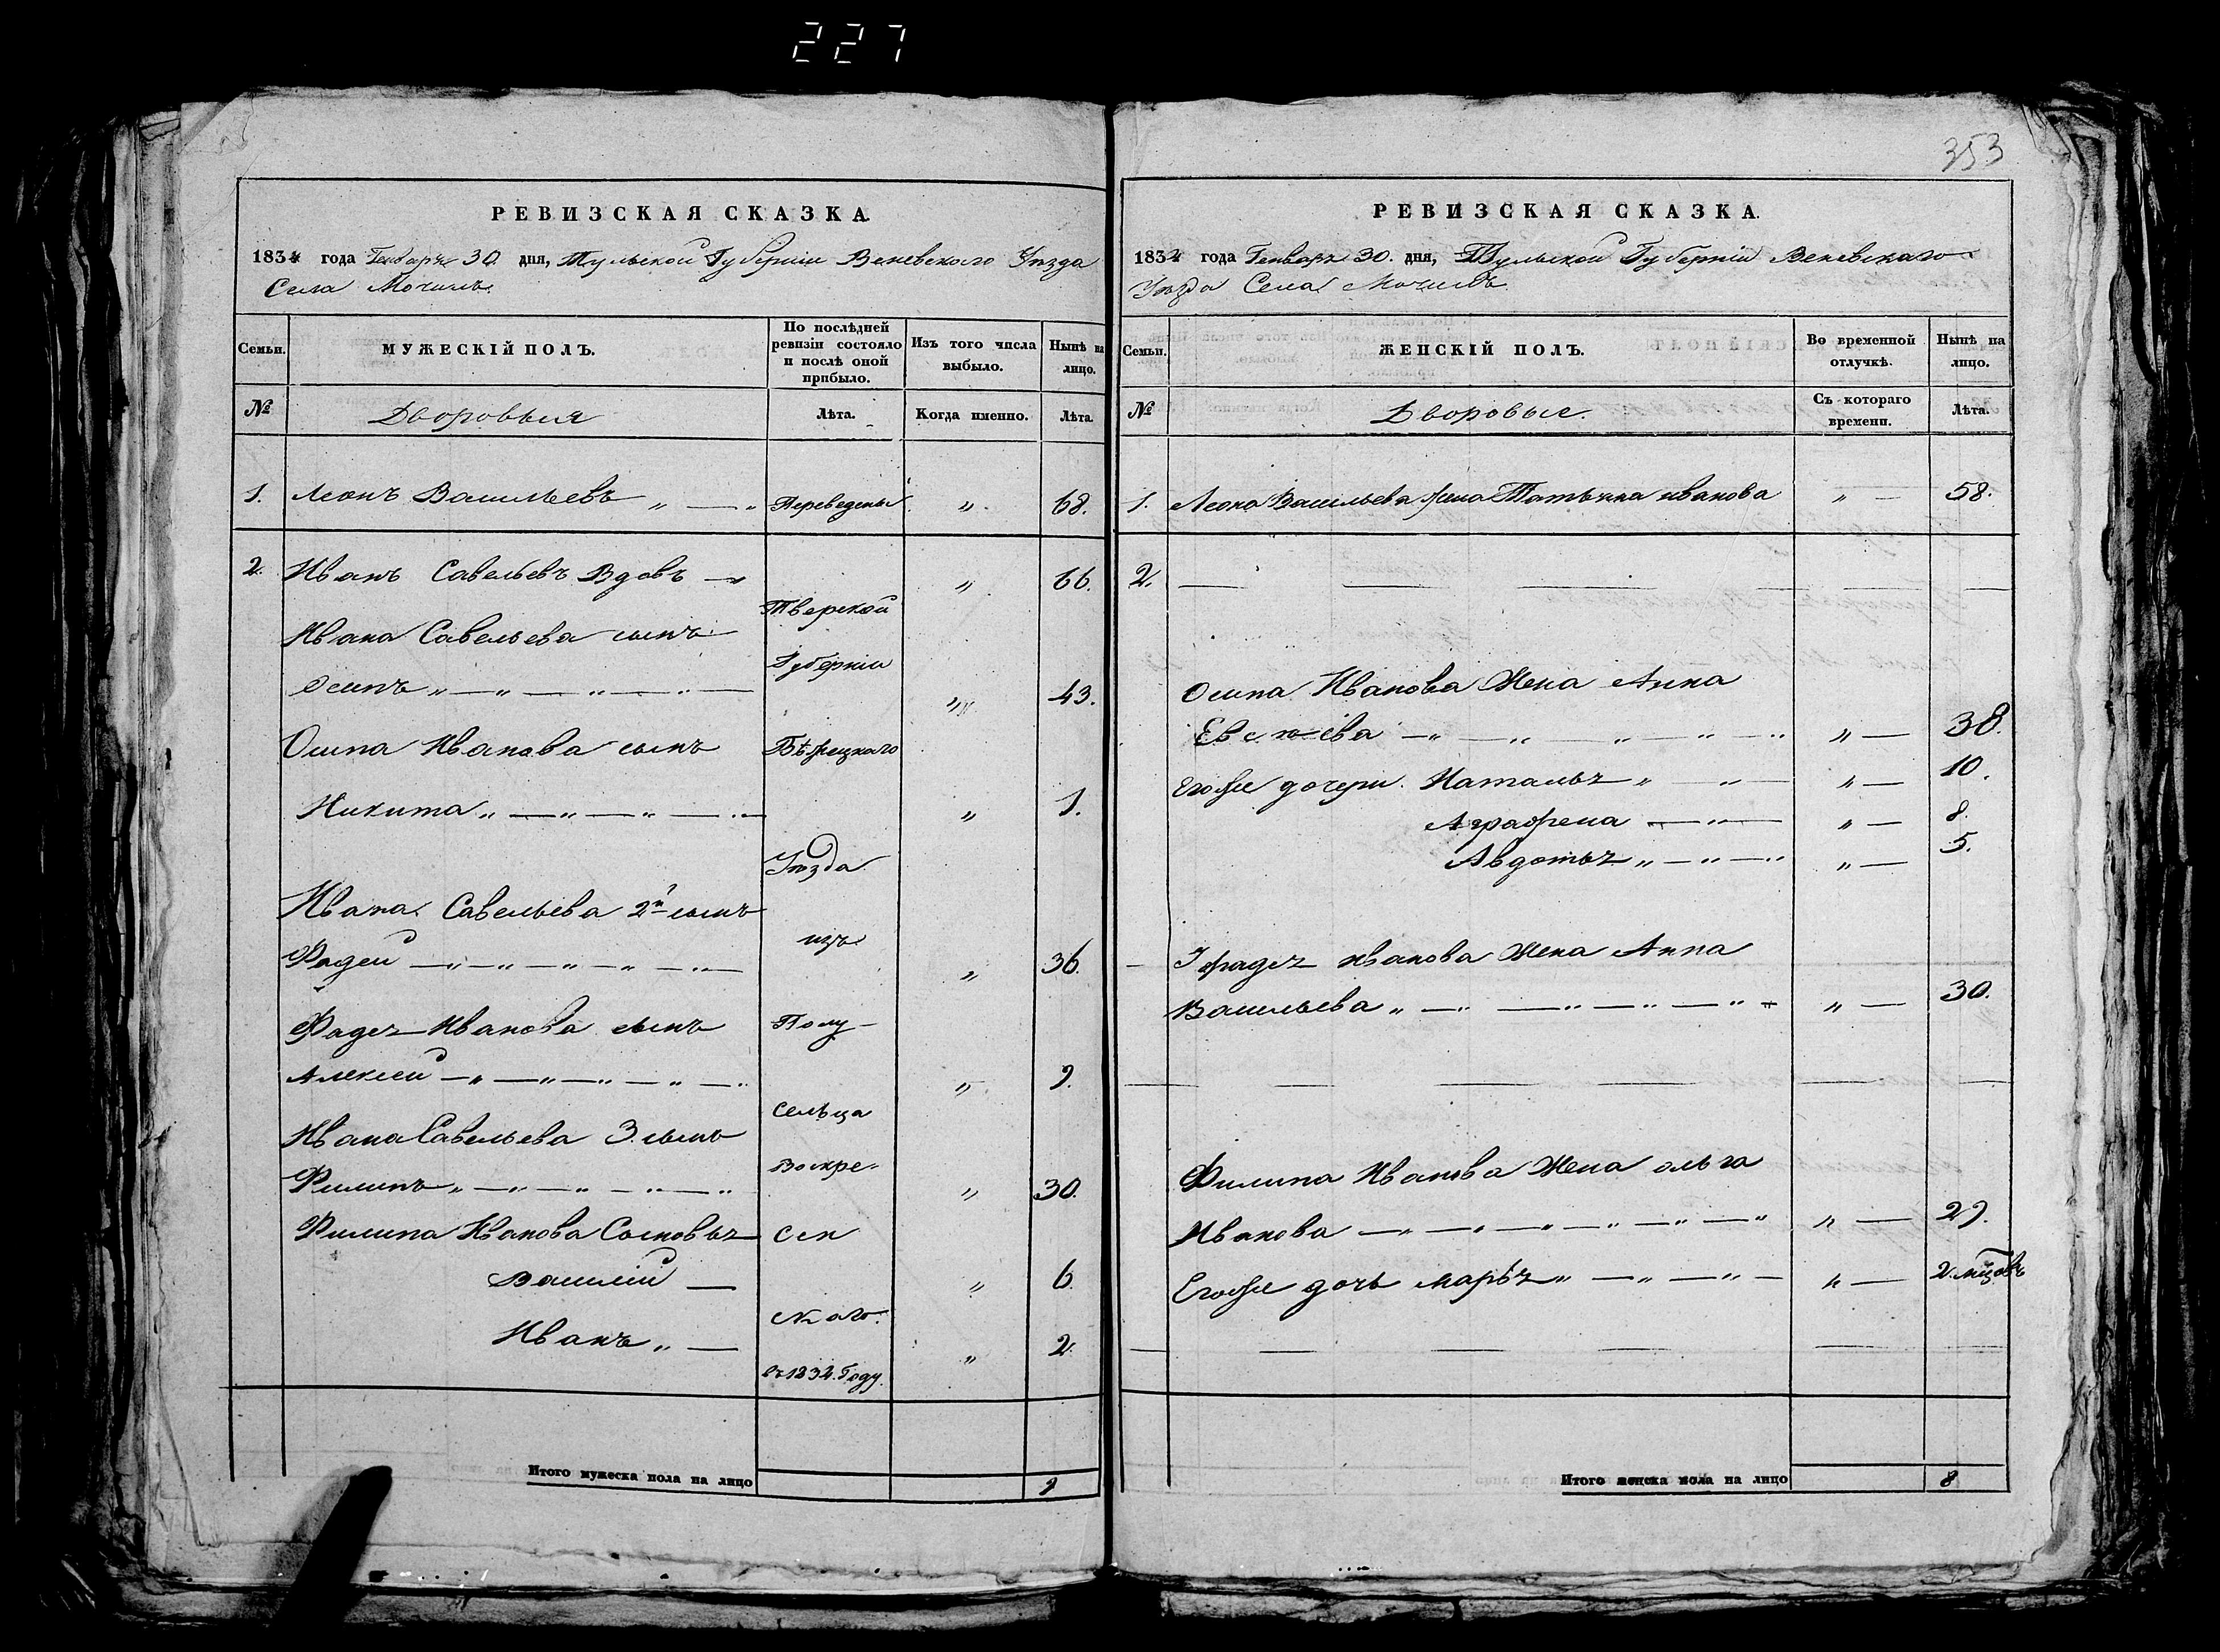 227
353
РЕВИЗСКАЯ СКАЗКА.
1834 года Генваря 30. дня, Тульской Губернии Веневского Уѣзда
Села Мочилъ.
Семьи.
МУЖЕСКІЙ ПОЛЪ.
По послѣдней ревизіи состояло и послѣ оной прибыло.
Изъ того числа выбыло.
Нынѣ на лицо.
№
Дворовыя
Лѣта.
Когда именно.
Лѣта.
1. Леонъ Васильевъ „ — „ Переведены „ 68.
2. Иванъ Савельевъ Вдовъ — „ 66.
Тверской
Ивана Савельева сынъ
Губерніи
Осипъ „ — „ — „ — „ — „ 43.
Осипа Иванова сынъ Бѣжецкаго
Никита „ — „ — „ — „ — „ 1.
Уѣзда
Ивана Савельева 2й сынъ
изъ
Фадей — „ — „ — „ — „ — „ — „ 36.
Фадея Иванова сынъ Полу-
Алексей — „ — „ — „ — „ — „ „ 9.
сельца
Ивана Савельева 3. сынъ
Воскре-
Филипъ „ — „ — „ — „ — „ „ 30.
Филипа Иванова Сыновья сен
Василій — „ 6.
скаго.
Иванъ „ — „ 2.
въ 1834. Году.
Итого мужеска пола на лицо 9
РЕВИЗСКАЯ СКАЗКА.
1834 года Генваря 30. дня, Тульской Губерніи Веневскаго
Уѣзда Села Мочилъ.
Семьи.
ЖЕНСКІЙ ПОЛЪ.
Во временной отлучкѣ.
Нынѣ на лицо.
№
Дворовые.
Съ котораго времени.
Лѣта.
1. Леона Васильева жена Татьяна иванова „ — 58.
2. — — — — — —
Осипа Иванова Жена Анна
— „ — „ — „ — „ — „ „ — 38.
Егоже дочери. Наталья „ — „ — „ — 10.
Аграфена — „ — „ — 8.
Авдотья „ — „ — „ „ — 5.
Фадея иванова Жена Анна
Васильева „ — „ — „ — „ — „ — „ — 30.
— — — — — —
Филипа Иванова Жена ольга
Иванова — „ — „ — „ — „ — „ — „ „ — 29.
Егоже дочь марья „ — „ — „ — „ — 2. мцовъ
— — — — — —
Итого женска пола на лицо 8